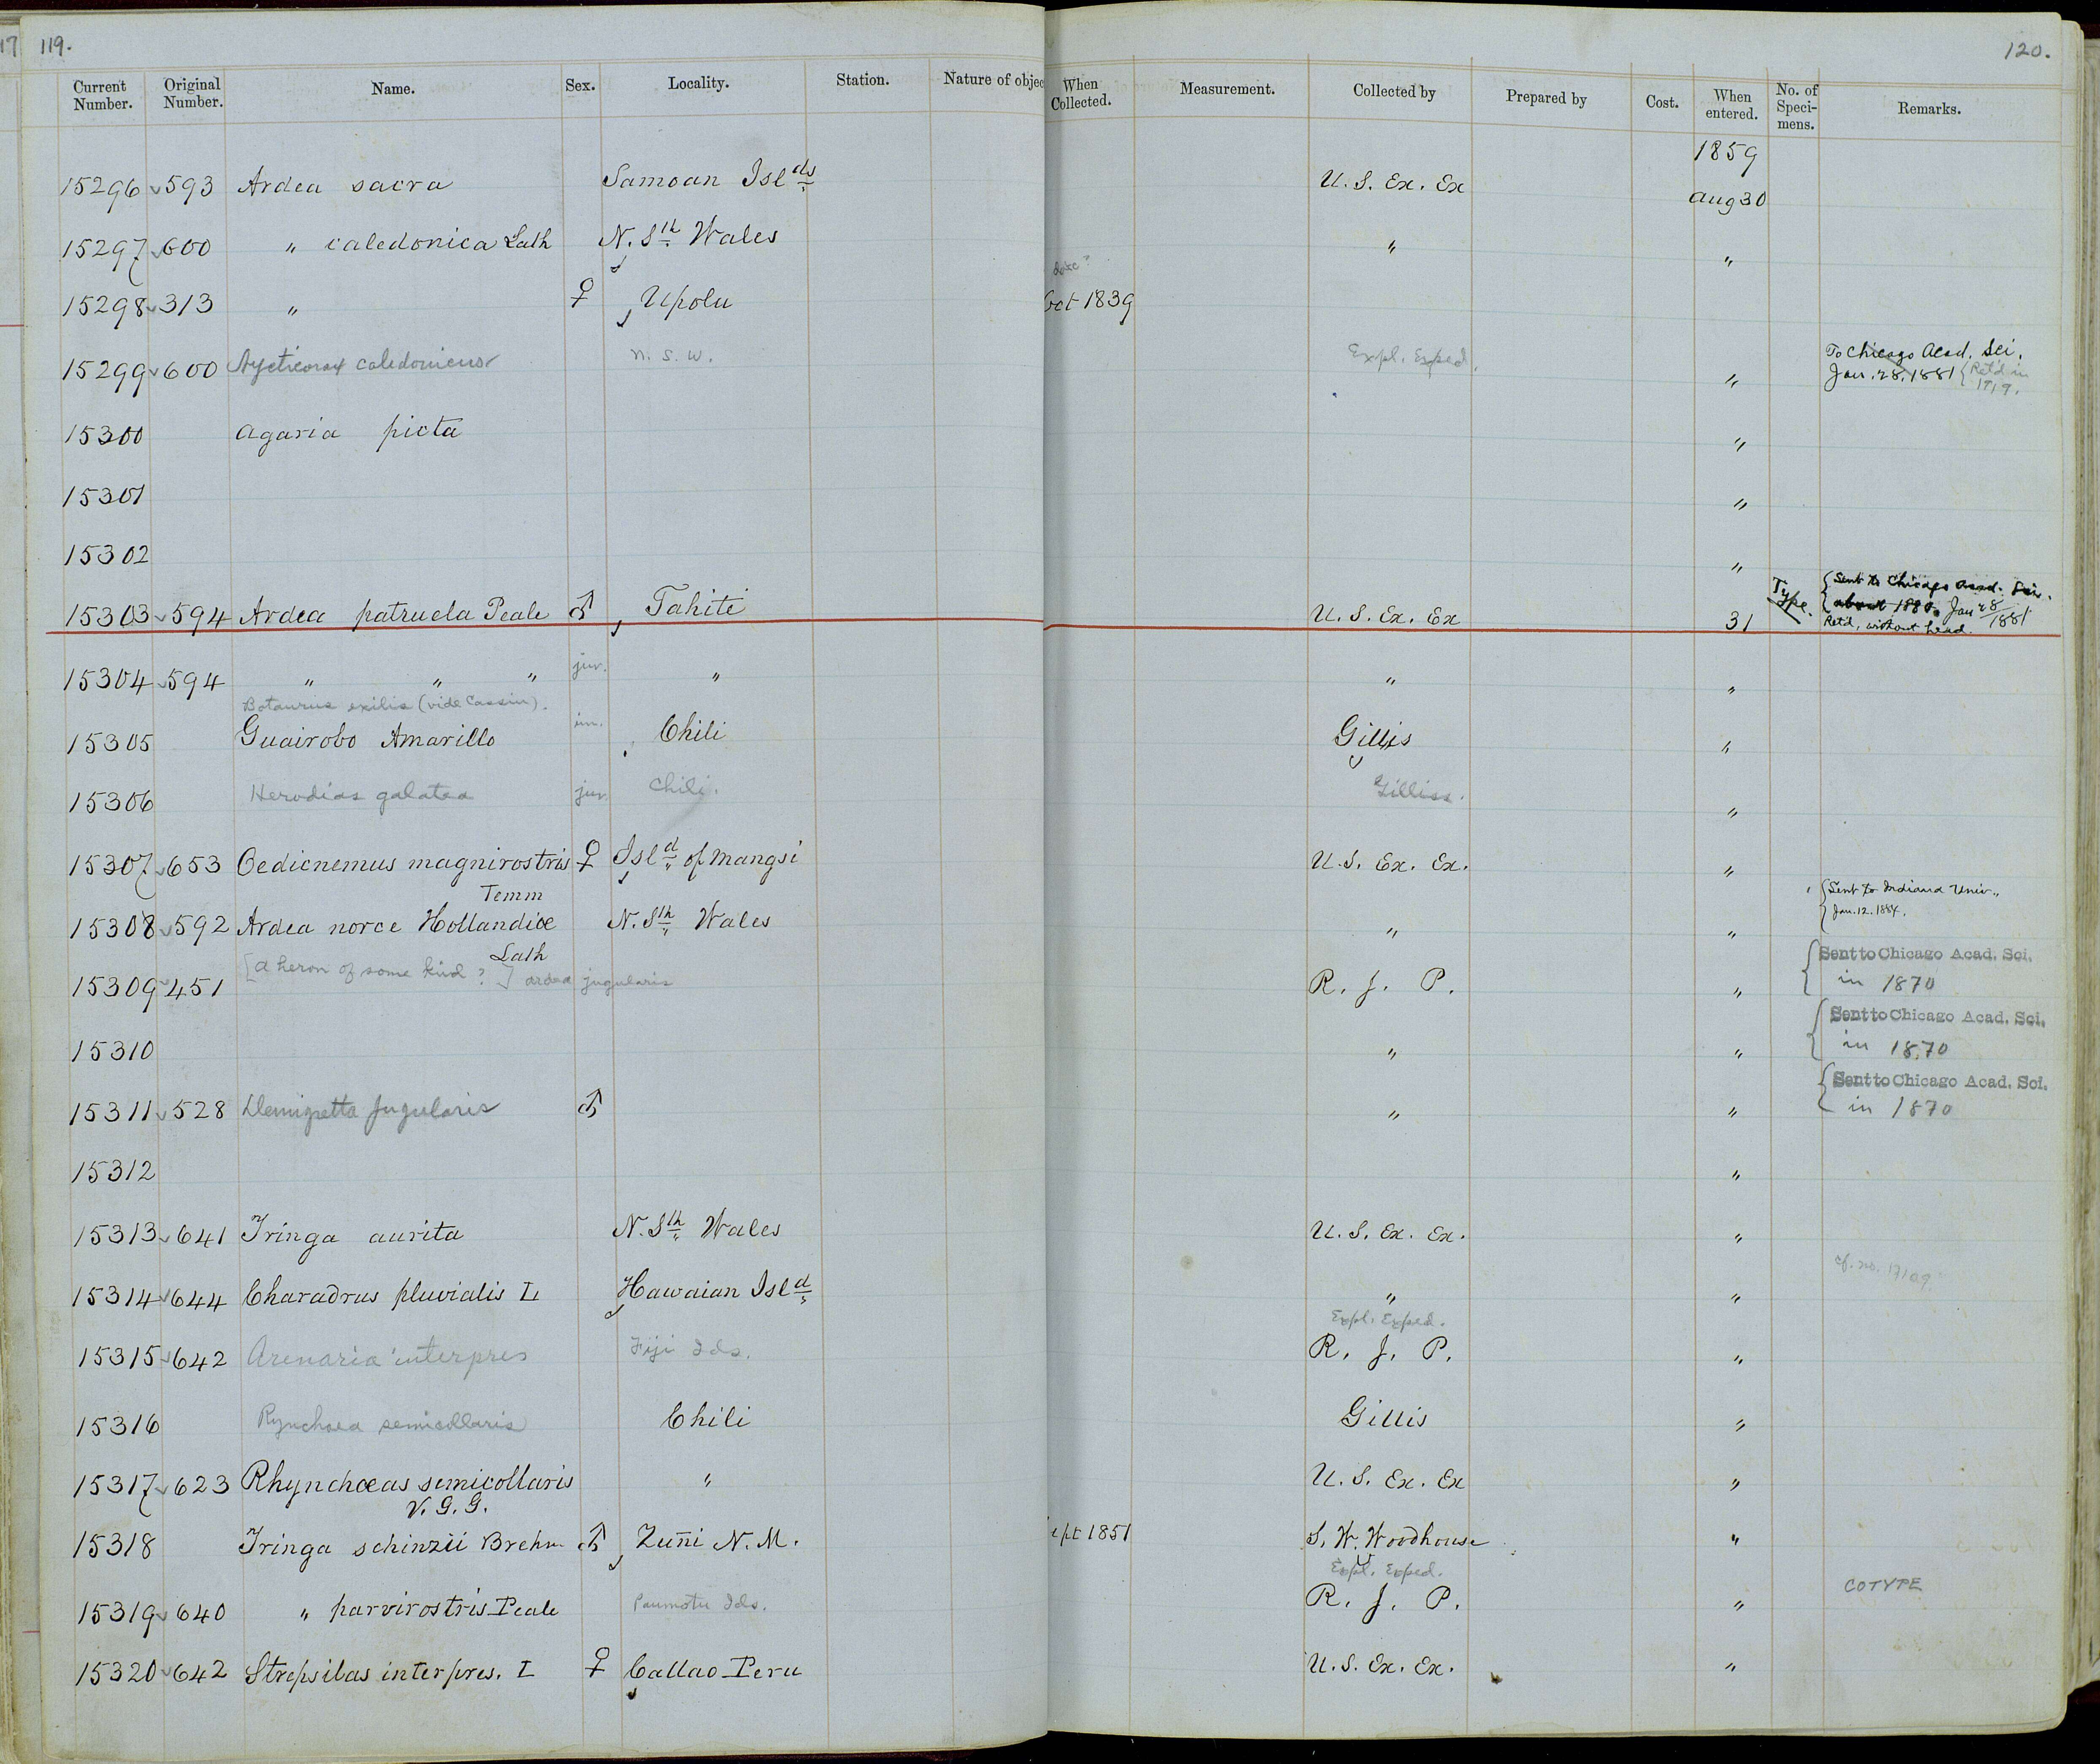 17 119. 120.
Current Number. Original Number. Name. Sex. Locality. Station. Nature of objec When Collected. Measurement. Collected by Prepared by Cost. When entered. No. of Speci-mens. Remarks.
1859
15296 593 Ardea sacra Samoan Islds U. S. Ex. Ex Aug 30
15297 600 " caledonica Lath N. Sth Wales " "
date?
15298 313 " ♀ Upolu Oct 1839
15299 600 Nycticorax caledonicus N. S. W. Expl. Exped. " To Chicago Acad. Sci. Jan. 28. 1881 { Ret'd in 1919.
15300 Agaria picta "
15301 "
15302 "
15303 594 Ardea patruela Peale ♂ Tahiti U. S. Ex. Ex 31 Type. { Sent to Chicago Acad. Sci. about 1880. Jan 28 1881 Ret'd, without head.
15304 594 " " " juv. " " "
Botaurus exilis (vide Cassin).
15305 Guairobo Amarillo im. Chili Gillis "
15306 Herodias galatea juv. Chili. Gilliss. "
15307 653 Oedicnemus magnirostris ♀ Isld of Mangsi U. S. Ex. Ex. "
Temm
15308 592 Ardea norce Hollandiœ N. Sth Wales " " { Sent to Indiana Univ., Jan. 12. 1884.
Lath
15309 451 [A heron of some kind?] ardea jugularis R. J. P. " { Sent to Chicago Acad. Sci. in 1870
15310 " " { Sent to Chicago Acad. Sci. in 1870
15311 528 Demigretta jugularis ♂ " " { Sent to Chicago Acad. Sci. in 1870
15312 "
15313 641 Tringa aurita N. Sth Wales U. S. Ex. Ex. "
15314 644 Charadrus pluvialis L Hawaian Isld " " cf. no. 17109.
Expl. Exped.
15315 642 Arenaria interpres Fiji Ids. R. J. P. "
15316 Rynchaea semicollaris Chili Gillis "
15317 623 Rhynchœas semicollaris " U. S. Ex. Ex "
V. G. G.
15318 Tringa schinzii Brehm ♂ Zuñi N. M. ept 1851 S. W. Woodhouse "
Expl. Exped.
15319 640 " parvirostris Peale Paumotu Ids. R. J. P. " COTYPE
15320 642 Strepsilas interpres. L ♀ Callao Peru U. S. Ex. Ex. "